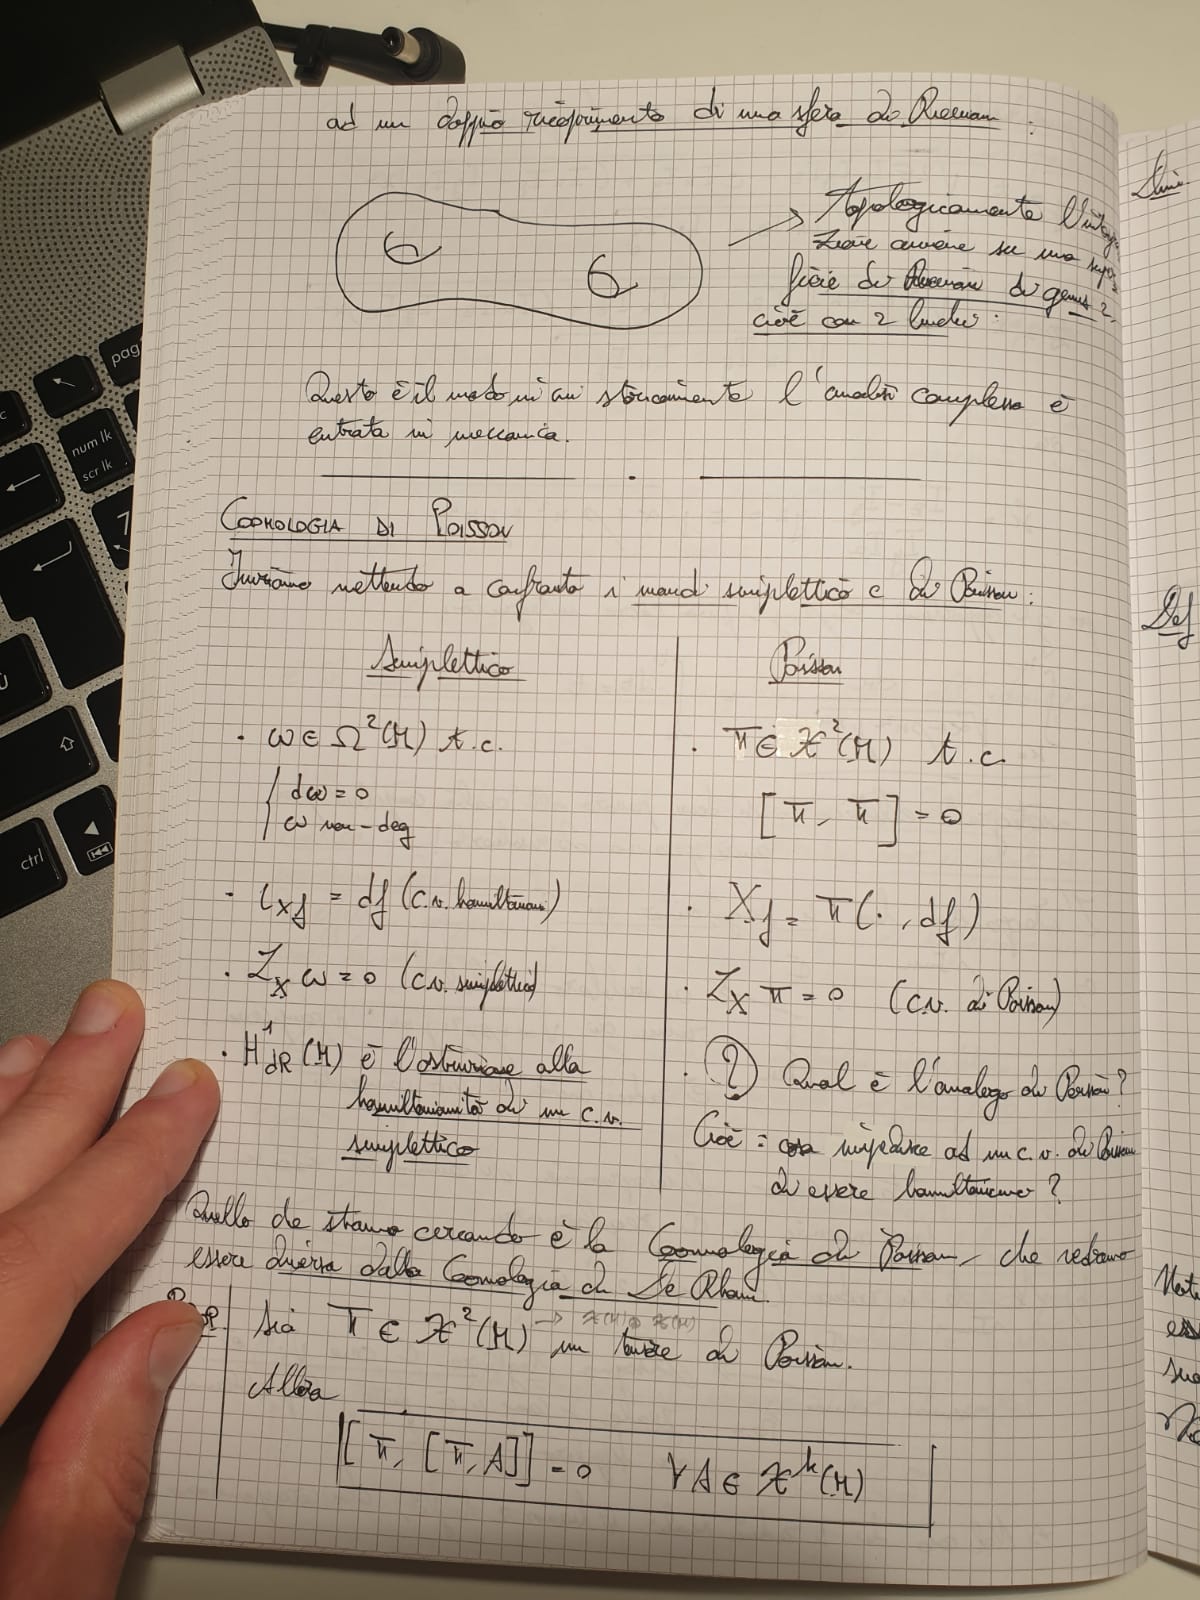 ad un doppio ricoprimento di una sfera di Riemann :
Topologicamente l'integ
zione avviene su una super
ficie di Riemann di genus 2,
cioè con 2 buchi :
Questo è il modo in cui storicamente l'analisi complessa è
entrata in meccanica.
COOMOLOGIA DI POISSON
Iniziamo mettendo a confronto i mondi simplettico e di Poisson :
Simplettico
Poisson
· ω ∈ Ω²(M) t.c.
{ dω = 0
ω non-deg
· ι_Xf = df (c.v. hamiltoniani)
· L_X ω = 0 (c.v. simplettici)
· H¹_dR (M) è l'ostruzione alla
hamiltonianità di un c.v.
simplettico
· π ∈ 𝔛²(M) t.c.
[π, π] = 0
· X_f = π(·, df)
· L_X π = 0 (c.v. di Poisson)
· ? Qual è l'analogo di Poisson?
Cioè : cosa impedisce ad un c.v. di Poisson
di essere hamiltoniano ?
Quello che stiamo cercando è la Coomologia di Poisson, che vedremo
essere diversa dalla Coomologia di De Rham.
Prop. Sia π ∈ 𝔛²(M) un tensore di Poisson.
Allora
[π, [π, A]] = 0 ∀A ∈ 𝔛ᵏ(M)
pag
num lk
scr lk
7
ù
ctrl
c
Def